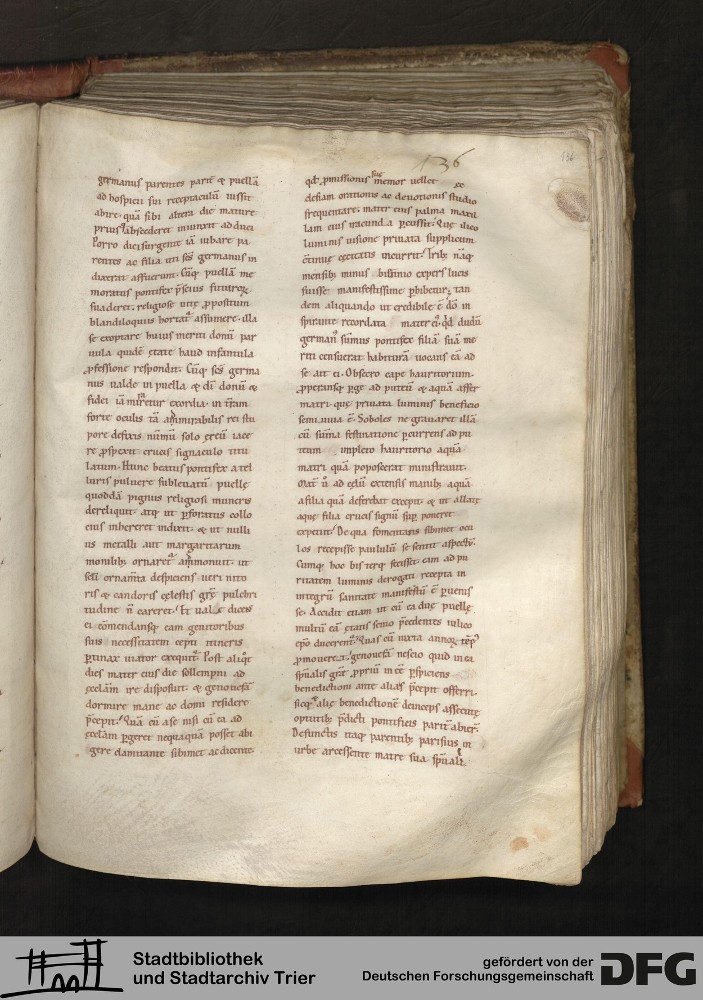 136
136
germanus parentes parit̄ & puellā
ad hospicii sui receptaculū iussit
abire. quā sibi altera die mature
priusq̄ abscederet iniunxit adduci
Porro diei surgenti iā iubare pa
rentes ac filia uti sc̄s germanus in
dixerat affuerunt. Cūq; puellā me
moratus pontifex p̄scius futurorꝫ
suaderet. religiose uitę ꝓpositum
blandiloquiis hortat᷑ assumere. illa
se exoptare huius meriti donū par
uula quidē ętate haud infantula
ꝓfessione respondit. Cūq; sc̄s germa
nus ualde in puella & dī donū &
fidei iā miraretur exordia. in t̄ram
forte oculis tā ammirabilis rei stu
pore defixis nūmū solo ęreū iace
re ꝓspexit crucis signaculo titu
latum. Hunc beatus pontifex a tel
luris puluere subleuatū puellę
quoddā pignus religiosi muneris
dereliquit. atq; ut ꝑforatus collo
eius inhereret indixit. & ut nulli
us metalli aut margaritarum
monilib; ornaret᷑ ammonuit. ut
sc̄li ornam̄ta despiciens ueri nito
ris & candoris cęlestis grę pulchri
tudine n̄ careret. Et uale dicens
ei cōmendansq; eam genitoribus
suis necessitatem cepti itineris
ꝑtinax uiator exequit᷑. Post aliqt̄
dies mater eius die sollempni ad
ęcclām ire disposuit. & genouefā
dormire mane ac domi residere
p̄cepit. Quā cū a se nisi cū ea ad
ęcclām ꝑgeret nequaquā posset abi
gere clamitante sibimet ac dicente.
qđ ꝓmissionis suę memor uellet ęc
clesiam orationis ac deuotionis studio
frequentare. mater eius palma maxil
lam eius iracunda ꝑcussit. Quę dicto
luminis uisione priuata supplicium
cōtinuę cęcitatis incurrit. Trib; nāq;
mensib; minus biennio expers lucis
fuisse manifestissime ꝑhibetur. tan
dem aliquando ut credibile ē dō in
spirante recordata mater ei᷒. qđ dudū
german᷒ sum̄us pontifex filiā suā me
riti censuerat habiturā. uocans eā ad
se ait ei. Obsecro cape hauritorium.
ꝓperansq; ꝑge ad puteū & aquā affer
matri quę priuata luminis beneficio
semi uiua ē. Soboles ne grauaret illā
cū sum̄a festinatione ꝑcurrens ad pu
teum impleto hauritorio aquā
matri quā poposcerat ministrauit.
Mat̄ ū ad cęlū extensis manib; aquā
a filia quā deferebat excepit. & ut allatę
aquę filia crucis signū suꝑ poneret
expetiit. De qua fomentatis sibimet ocu
los recepisse paululū se sentit aspectū.
Cumq; hoc bis terq; fecisset. eam ad pu
ritatem luminis derogati recepta in
integrū sanitate manifestū ē ꝑuenis
se. Accidit etiam ut cū ea duę puellę
multū eā ętatis senio p̄cedentes iulico
ep̄o ducerent᷑. Quas cū iuxta annoꝝ tēp᷒
ꝓmoueret. genouefā nescio quid in ea
sp̄ualis grę ꝓpriū in eē ꝑspiciens
benedictioni ante alias p̄cepit offerri.
sicq; alię benedictionē deinceps assecutę
optutib; p̄dicti pontificis parit̄ abier̄.
Defunctis itaq; parentib; parisius in
urbe arcessente matre sua sp̄uali.
Stadtbibliothek
und Stadtarchiv Trier
gefördert von der
Deutschen Forschungsgemeinschaft
DFG